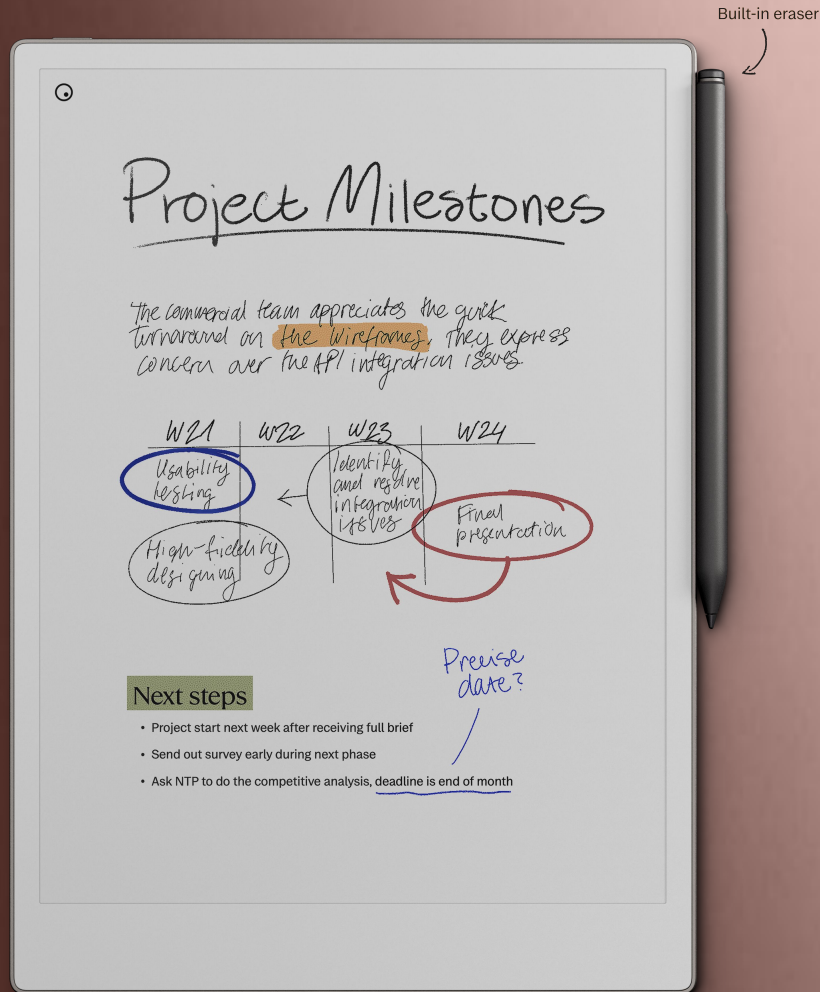 Built-in eraser
Project Milestones
The commercial team appreciates the quick
turnaround on the wireframes. They express
concern over the API integration issues.
W21 W22 W23 W24
Usability
testing
Identify
and resolve
integration
issues
Final
presentation
High-fidelity
designing
Precise
date?
Next steps
• Project start next week after receiving full brief
• Send out survey early during next phase
• Ask NTP to do the competitive analysis, deadline is end of month